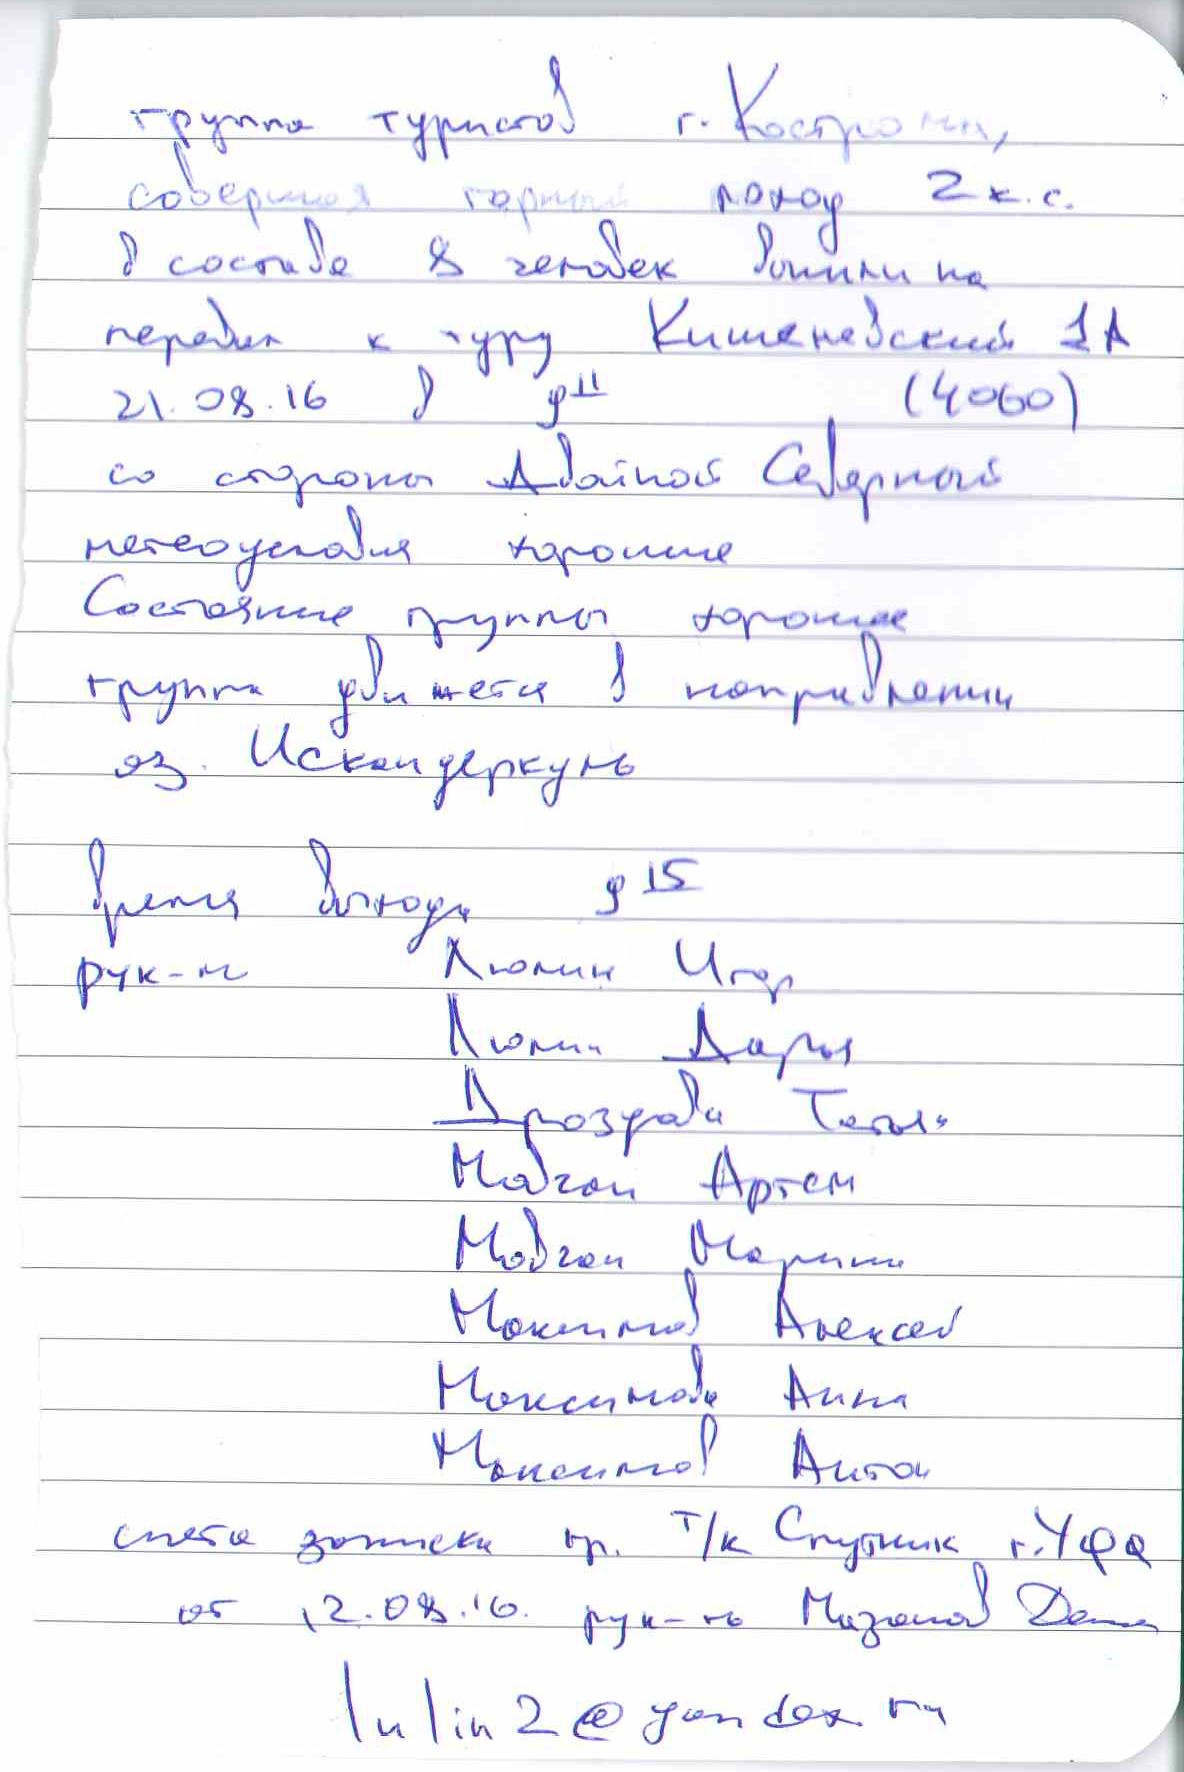 группа туристов г. Костромы,
совершая горный поход 2 к.с.
в составе 8 человек вышли на
перевал к туру Кишеневский 1А
21.08.16 в 9 11 (4060)
со стороны Двойной Северный
метеоусловия хорошие
Состояние группы хорошее
группа движется в направлении
оз. Искандеркуль
время выхода 9 15
рук-ль Люлин Игор
Люлин Дарья
Дроздова Татьян
Мовчан Артем
Мовчан Марина
Максимов Алексей
Максимова Анна
Максимов Антон
снята записка гр. т/к Спутник г. Уфа
от 12.08.16. рук-ль Мазанов Денис
lulin2@yandex.ru